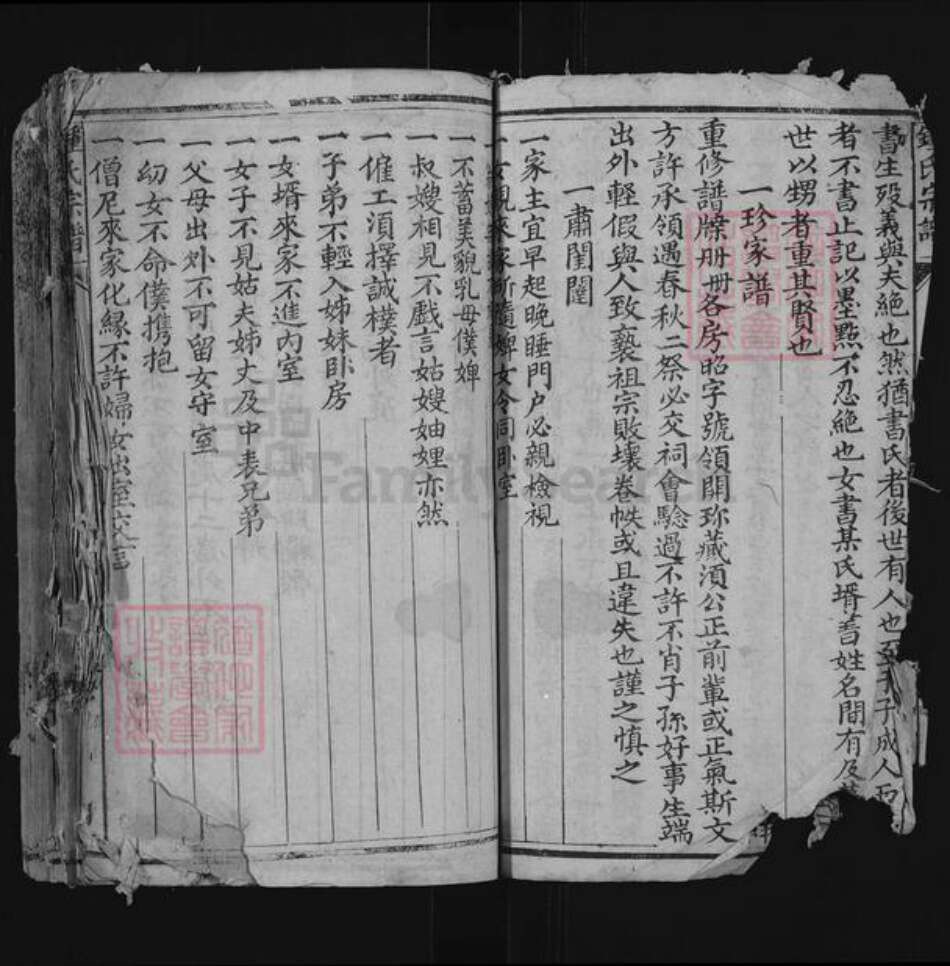 書生歿義與夫絶也然猶書氏者後世有人也至于子成人而
者不書止記以墨點不忍絶也女書某氏壻著姓名間有及其
世以甥者重其賢也
一珍家譜
重修譜牒册册各房昭字號領開珎藏湏公正前輩或正氣斯文
方許承領遇春秋二祭必交祠會驗過不許不肖子孫好事生端
出外輕假與人致褻祖宗敗壞卷帙或且違失也謹之慎之
一肅閨閫
一家主宜早起晚睡門户必親檢視
一女親來家所隨婢女令同卧室
一不蓄美貌乳母僕婢
一叔嫂相見不戲言姑嫂妯娌亦然
一僱工湏擇誠樸者
一子弟不輕入姊妹卧房
一女壻來家不進内室
一女子不見姑夫姊丈及中表兄弟
一父母出外不可留女守室
一幼女不命僕携抱
一僧尼來家化緣不許婦女出室交言
氏宗譜
FamilySearch